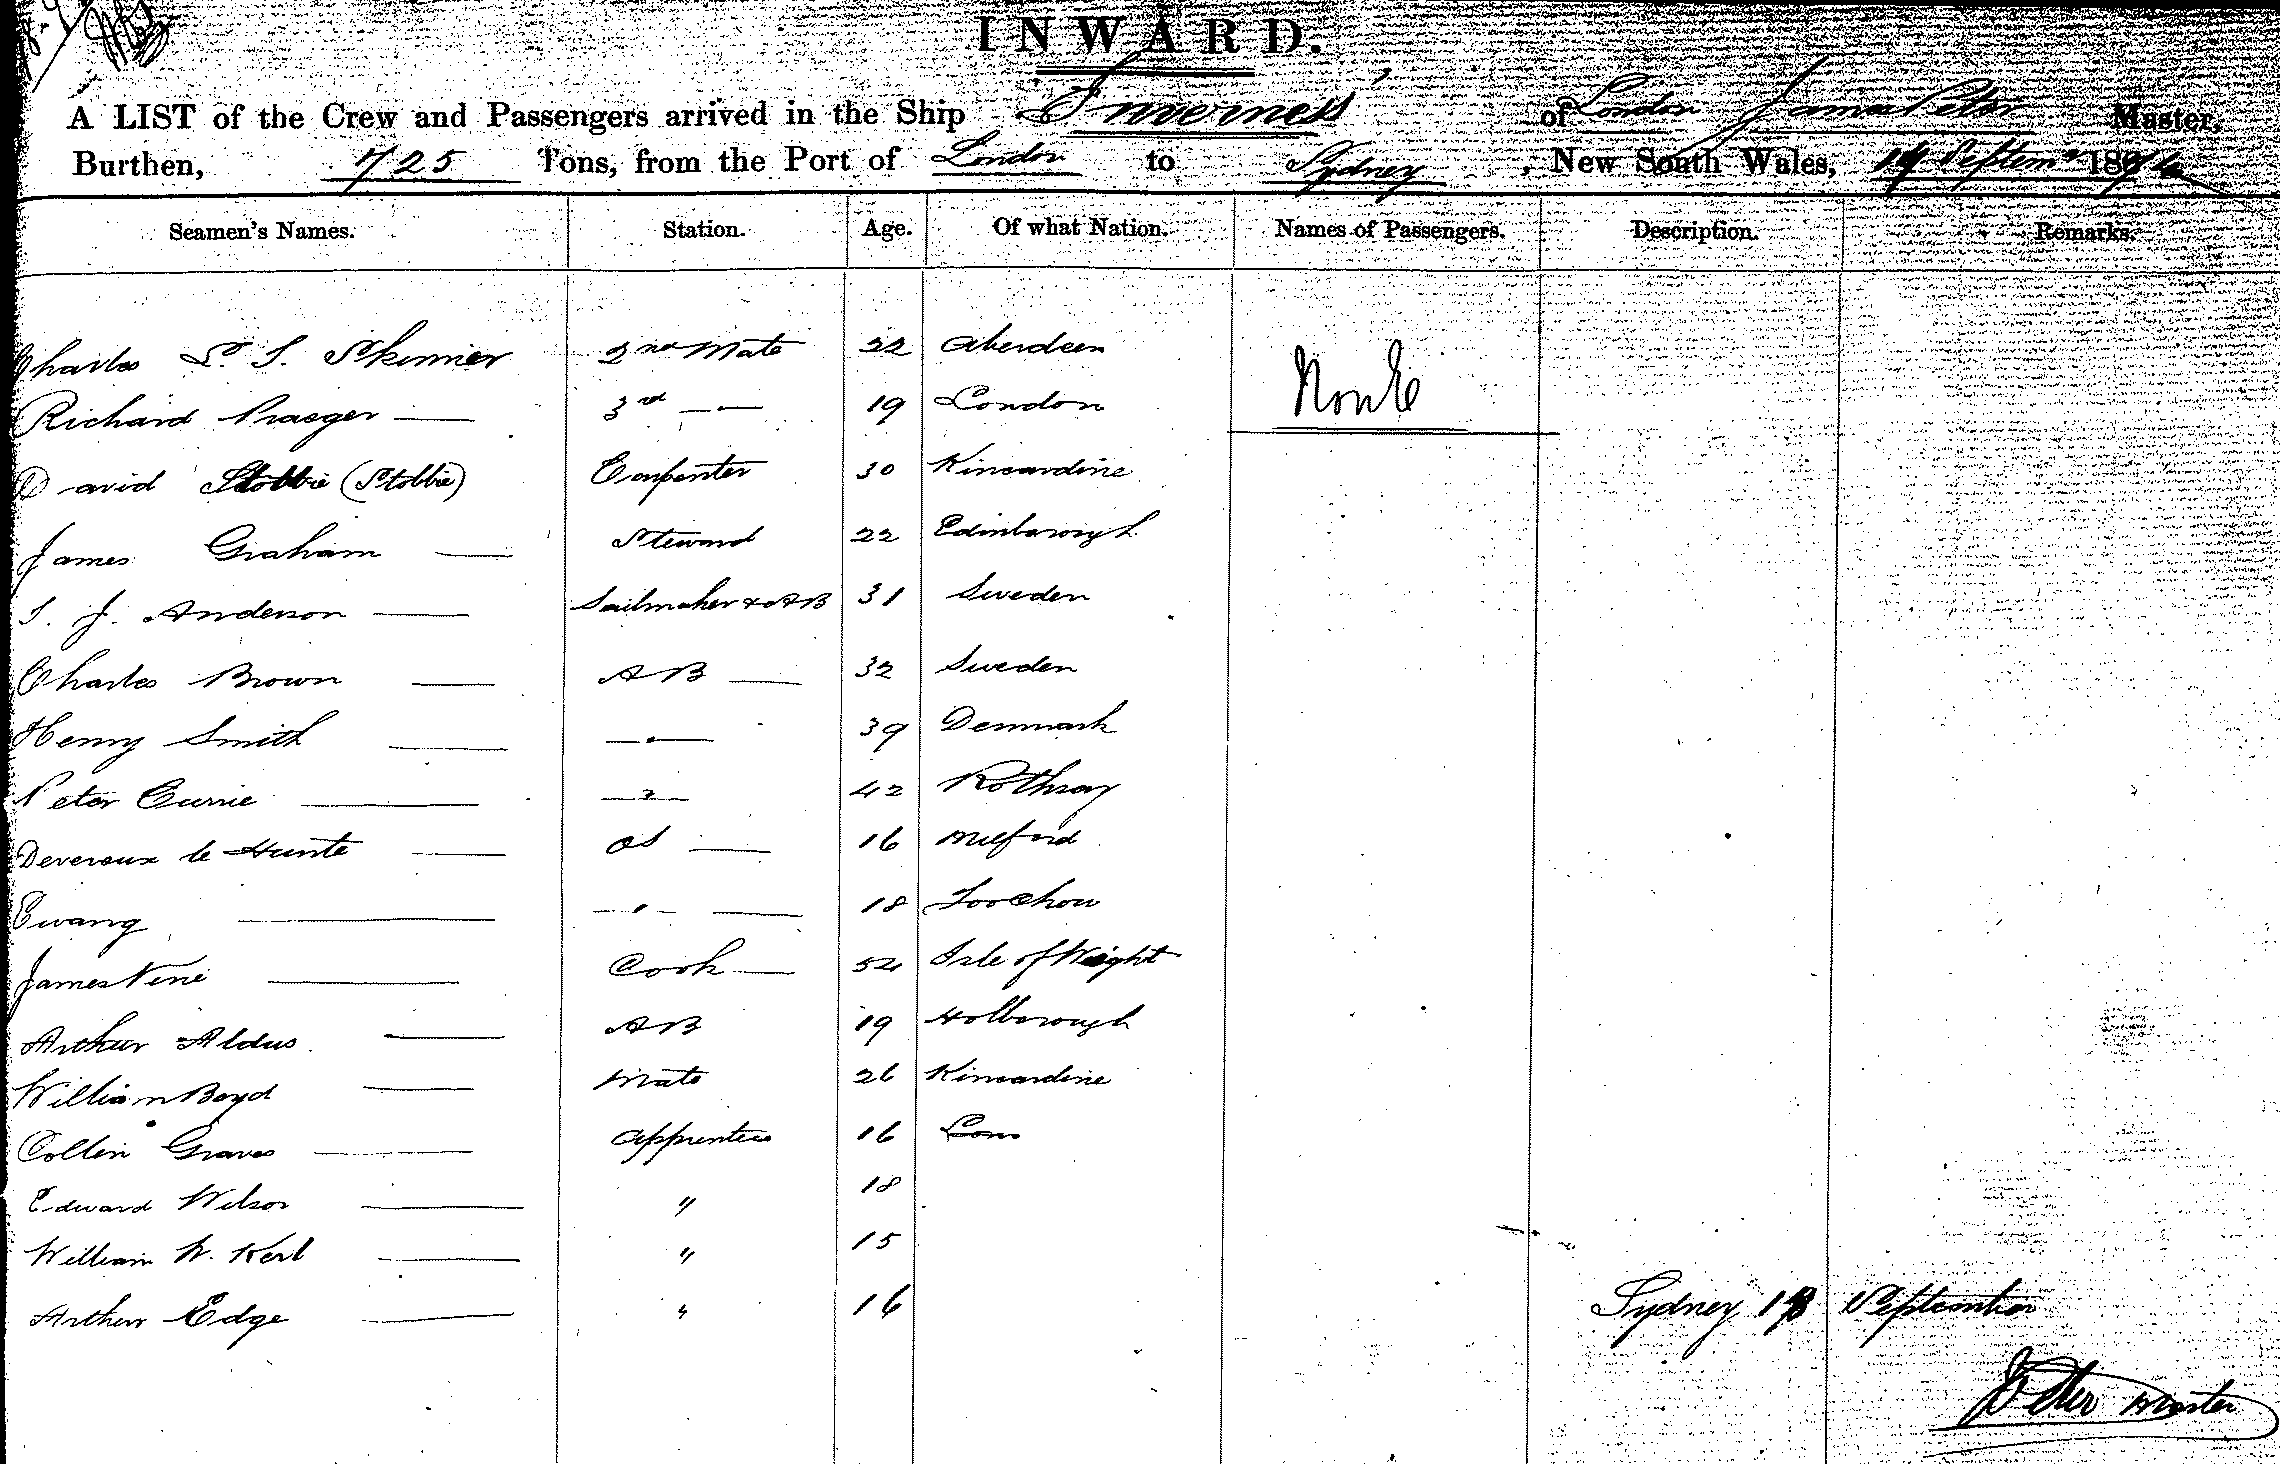 INWARD.
A LIST of the Crew and Passengers arrived in the Ship Inverness of London James Peter Master,
Burthen, 725 Tons, from the Port of London to Sydney, New South Wales, 19 Septemr 187
Seamen's Names. Station. Age. Of what Nation. Names of Passengers. Description. Remarks.
Charles S. Skinner 2nd Mate 22 Aberdeen None
Richard Praeger — 3rd — " — 19 London
David Stobbie (Stobbie) Carpenter 30 Kincardine
James Graham — Steward 22 Edinborough
J. Anderson — Sailmaker & AB 31 Sweden
Charles Brown — AB — 32 Sweden
Henry Smith — — " — 39 Denmark
Peter Currie — — " — 42 Rothsay
Devereux le Hunte — OS — 16 Milford
Ewang — — " — — 18 Foo Chow
James Vine — Cook — 54 Isle of Wight
Arthur Aldus — AB 19 Holborough
William Boyd — Mate 26 Kincardine
Collin Graves — Apprentice 16 Lon
Edward Wilson — " 18
William W. — " 15
Arthur Edge — " 16
Sydney September
Peter Master